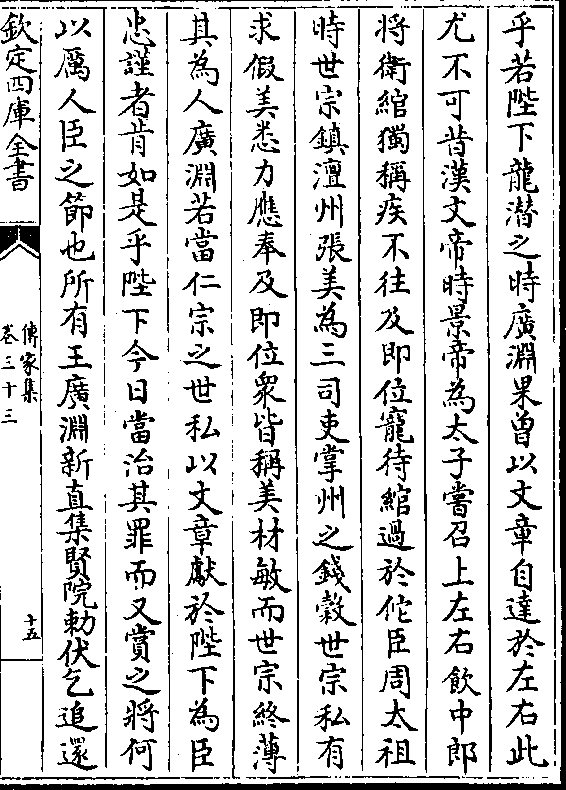 乎若陛下龍潛之時廣淵果曽以文章自達於左右此
尤不可昔漢文帝時景帝為太子嘗召上左右飲中郎
將衛綰獨稱疾不往及即位寵待綰過於佗臣周太祖
時世宗鎮澶州張美為三司吏掌州之錢糓世宗私有
求假美悉力應奉及即位衆皆稱美材敏而世宗終薄
其為人廣淵若當仁宗之世私以文章獻於陛下為臣
忠謹者肯如是乎陛下今日當治其罪而又賞之將何
以厲人臣之節也所有王廣淵新直集賢院勅伏乞追還
欽定四庫全書
傳家集
卷三十三
十五